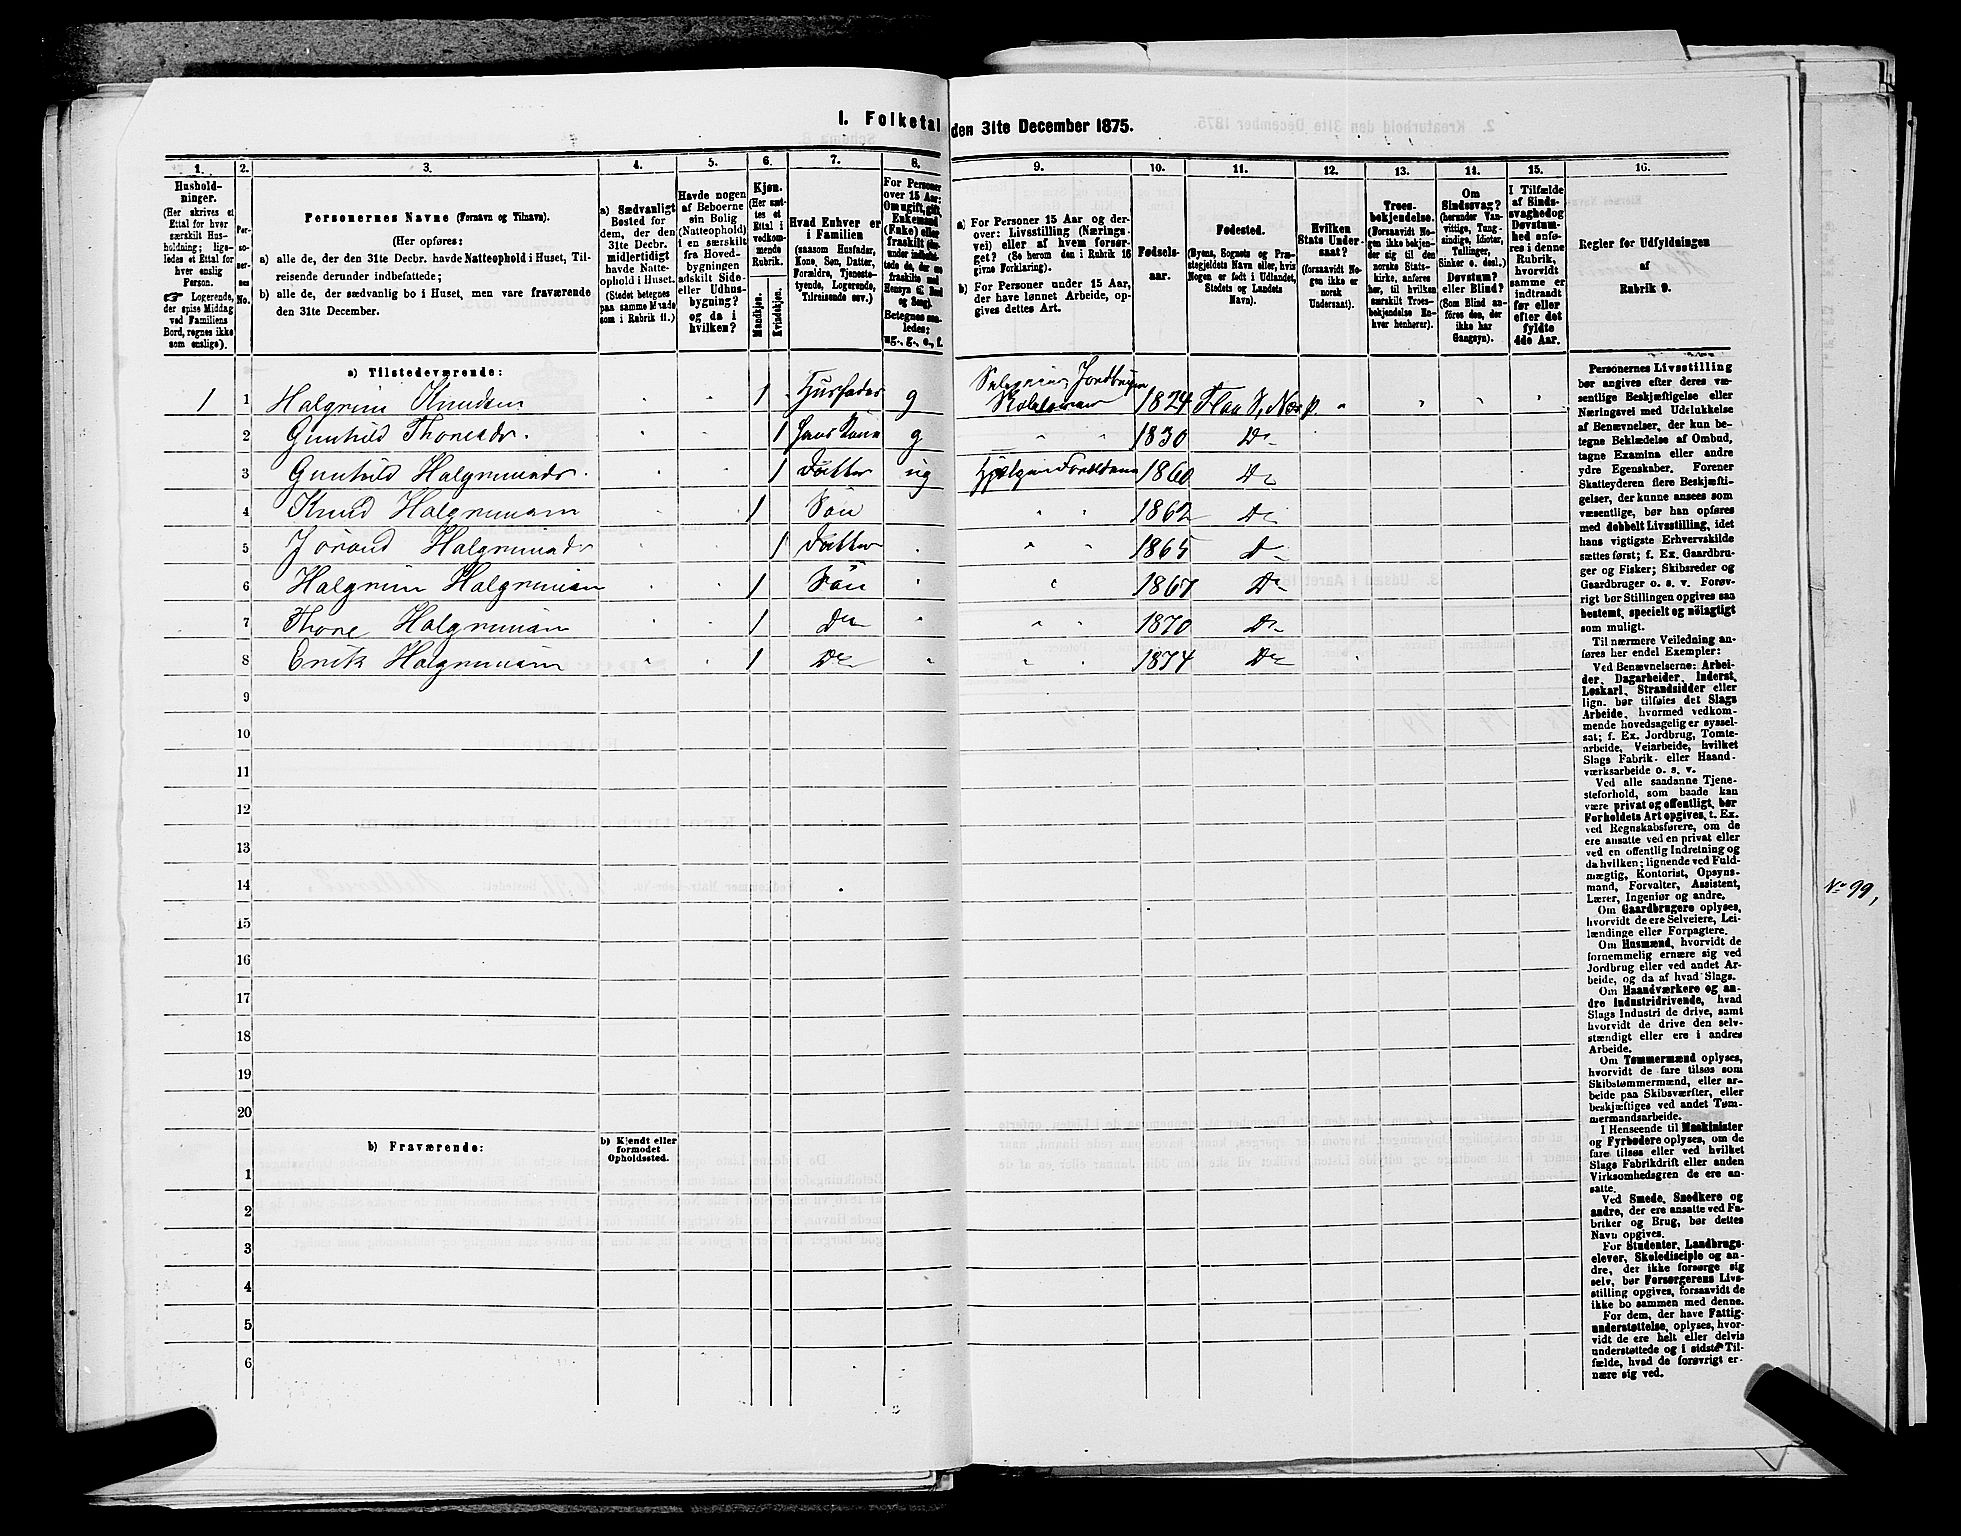 I. Folketal den 31te December 1875.
1. 2. 3. 4. 5. 6. 7. 8. 9. 10. 11. 12. 13. 14. 15. 16.
Hushold-
ninger.
(Her skrives et
Ettal for hver
særskilt Hus-
holdning; lige-
ledes et Ettal for
hver enslig
Person.
☞ Logerende,
der spise Middag
ved Familiens
Bord, regnes ikke
som enslige).
Per-
soner-
nes
No.
Personernes Navne (Fornavn og Tilnavn).
(Her opføres:
a) alle de, der den 31te Decbr. havde Natteophold i Huset, Til-
reisende derunder indbefattede;
b) alle de, der sædvanlig bo i Huset, men vare fraværende
den 31te December.
a) Sædvanligt
Bosted for
dem, der den
31te Decbr.
midlertidigt
havde Natte-
ophold i Huset.
(Stedet betegnes
paa samme Maade
som i Rubrik 11.)
Havde nogen
af Beboerne
sin Bolig
(Natteophold)
i en særskilt
fra Hoved-
bygningen
adskilt Side-
eller Udhus-
bygning?
og da i
hvilken?
Kjøn.
(Her sæt-
tes et
Ettal i
vedkom-
mende
Rubrik.
Mandkjøn.
Kvindekjøn.
Hvad Enhver er
i Familien
(saasom Husfader,
Kone, Søn, Datter,
Forældre, Tjeneste-
tyende, Logerende,
Tilreisende osv.)
For Personer
over 15 Aar:
Om ugift, gift,
Enkemand
(Enke) eller
fraskilt
Betegnes saa-
ledes:
ug., g., e., f.
a) For Personer 15 Aar og der-
over: Livsstilling (Nærings-
vei) eller af hvem forsør-
get? (Se herom den i Rubrik 16
givne Forklaring).
b) For Personer under 15 Aar,
der have lønnet Arbeide, op-
gives dettes Art.
Fødsels-
aar.
Fødested.
(Byens, Sognets og Præ-
stegjeldets Navn eller, hvis
Nogen er født i Udlandet,
Stedets og Landets
Navn).
Hvilken
Stats Under-
saat?
(forsaavidt No-
gen ikke er
norsk
Undersaat).
Troes-
bekjendelse.
(Forsaavidt No-
gen ikke bekjen-
der sig til den
norske Stats-
kirke, anføres
her, til hvilken
særskilt Troes-
bekjendelse En-
hver henhører).
Om
Sindssvag?
(herunder Van-
vittige, Tung-
sindige, Idioter,
Tullinger,
Sinker o. desl.)
Døvstum?
eller Blind?
(Som Blind an-
føres den, der
ikke har
Gangsyn).
I Tilfælde
af Sinds-
svaghed og
Døvstum-
hed anfø-
res i denne
Rubrik,
hvorvidt
samme er
indtraadt
før eller
efter det
fyldte
4de Aar.
Regler for Udfyldningen
af
Rubrik 9.
a) Tilstedeværende:
1 1 Halgrim Knudsen 1 Husfader g Selveier, Jordbruger 1824 Flaa S, Næs p.
2 Gunhild Thoresdr. 1 Hans Kone g 1830 Do
3 Gunhild Halgrimsdr. 1 Datter ug Hjælper Forældrene 1860 Do
4 Knud Halgrimsen 1 Søn 1862 Do
5 Jorand Halgrimsdr 1 Datter 1865 Do
6 Halgrim Halgrimsen 1 Søn 1867 Do
7 Thore Halgrimsen 1 Do 1870 Do
8 Erik Halgrimsen 1 Do 1874 Do
9
10
11
12
13
14
15
16
17
18
19
20
b) Fraværende:
b) Kjendt eller
formodet
Opholdssted.
1
2
3
4
5
6
Personernes Livsstilling
bør angives efter deres væ-
sentlige Beskjæftigelse eller
Næringsvei med Udelukkelse
af Benævnelser, der kun be-
tegne Beklædelse af Ombud,
tagne Examina eller andre
ydre Egenskaber. Forener
Skatteyderen flere Beskjæfti-
gelser, der kunne ansees som
væsentlige, bør han opføres
med dobbelt Livsstilling, idet
hans vigtigste Erhvervskilde
sættes først; f. Ex. Gaardbru-
ger og Fisker; Skibsreder og
Gaardbruger o. s. v. Forøv-
rigt bør Stillingen opgives saa
bestemt, specielt og nöiagtigt
som muligt.
Til nærmere Veiledning an-
føres her endel Exempler:
Ved Benævnelserne: Arbei-
der, Dagarbeider, Inderst,
Løskarl, Strandsidder eller
lign. bør tilføies det Slags
Arbeide, hvormed vedkom-
mende hovedsagelig er syssel-
sat; f. Ex. Jordbrug, Tomte-
arbeide, Veiarbeide, hvilket
Slags Fabrik- eller Haand-
værksarbeide o. s. v.
Ved alle saadanne Tjene-
steforhold, som baade kan
være privat og offentligt, bør
Forholdets Art opgives, t. Ex.
ved Regnskabsførere, om de
ere ansatte ved en privat eller
ved en offentlig Indretning og
da hvilken; lignende ved Fuld-
mægtig, Kontorist, Opsyns-
mand, Forvalter, Assistent,
Lærer, Ingeniør og andre.
Om Gaardbrugere oplyses,
hvorvidt de ere Selveiere, Lei-
lændinge eller Forpagtere.
Om Husmænd, hvorvidt de
fornemmelig ernære sig ved
Jordbrug eller ved andet Ar-
beide, og da af hvad Slags.
Om Haandværkere og an-
dre Industridrivende, hvad
Slags Industri de drive, samt
hvorvidt de drive den selv-
stændigt eller ere i andres
Arbeide.
Om Tømmermænd oplyses,
hvorvidt de fare tilsøs som
Skibstømmermænd, eller ar-
beide paa Skibsværfter, eller
beskjæftiges ved andet Tøm-
mermandsarbeide.
I Henseende til Maskinister
og Fyrbødere oplyses, om de
fare tilsøs eller ved hvilket
Slags Fabrikdrift eller anden
Virksomhedsgren de ere an-
satte.
Ved Smede, Snedkere og
andre, der ere ansatte ved Fa-
briker og Brug, bør dettes
Navn opgives.
For Studenter, Landbrugs-
elever, Skoledisciple og an-
dre, der ikke forsørge sig
selv, bør Forsørgerens Livs-
stilling opgives, forsaavidt de
ikke bo sammen med denne.
For dem, der have Fattig-
understøttelse, oplyses, hvor-
vidt de ere helt eller delvis
understøttede og i sidste Til-
fælde, hvad de forøvrigt er-
nære sig ved.
No 99,